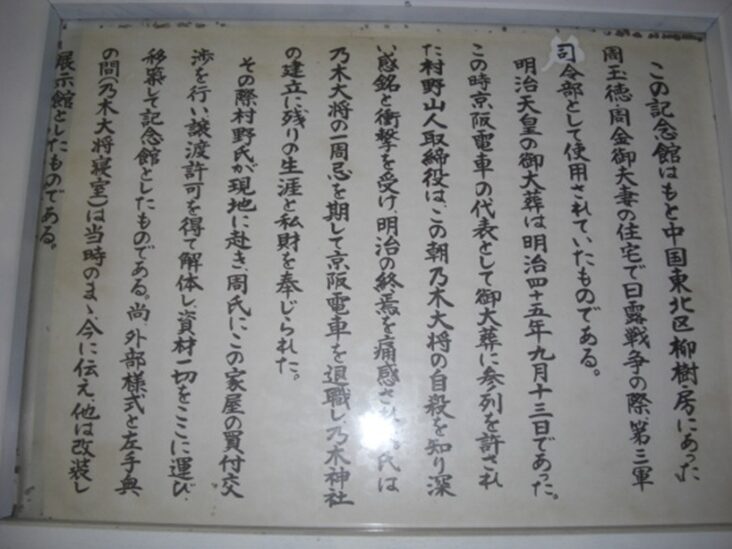 この記念館はもと中国東北区柳樹房にあった
周玉徳・周金御夫妻の住宅で日露戦争の際、第三軍
司令部として使用されていたものである。
明治天皇の御大葬は明治四十五年九月十三日であった。
この時京阪電車の代表として御大葬に参列を許され
た村野山人取締役は、この朝乃木大将の自殺を知り深
い感銘と衝撃を受け、明治の終焉を痛感され 氏は
乃木大将の一周忌を期して京阪電車を退職し、乃木神社
の建立に残りの生涯と私財を奉じられた。
その際村野氏が現地に赴き、周氏にこの家屋の買付交
渉を行い、譲渡許可を得て解体し、資材一切をここに運び、
移築して記念館としたものである。尚、外部様式と左手奥
の間(乃木大将寝室)は当時のまゝ今に伝え、他は改装し
展示館としたものである。